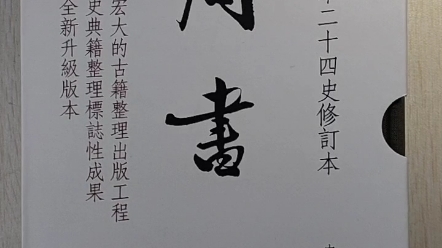 二十四史修訂本
周書
宏大的古籍整理出版工程
史典籍整理標誌性成果
全新升級版本